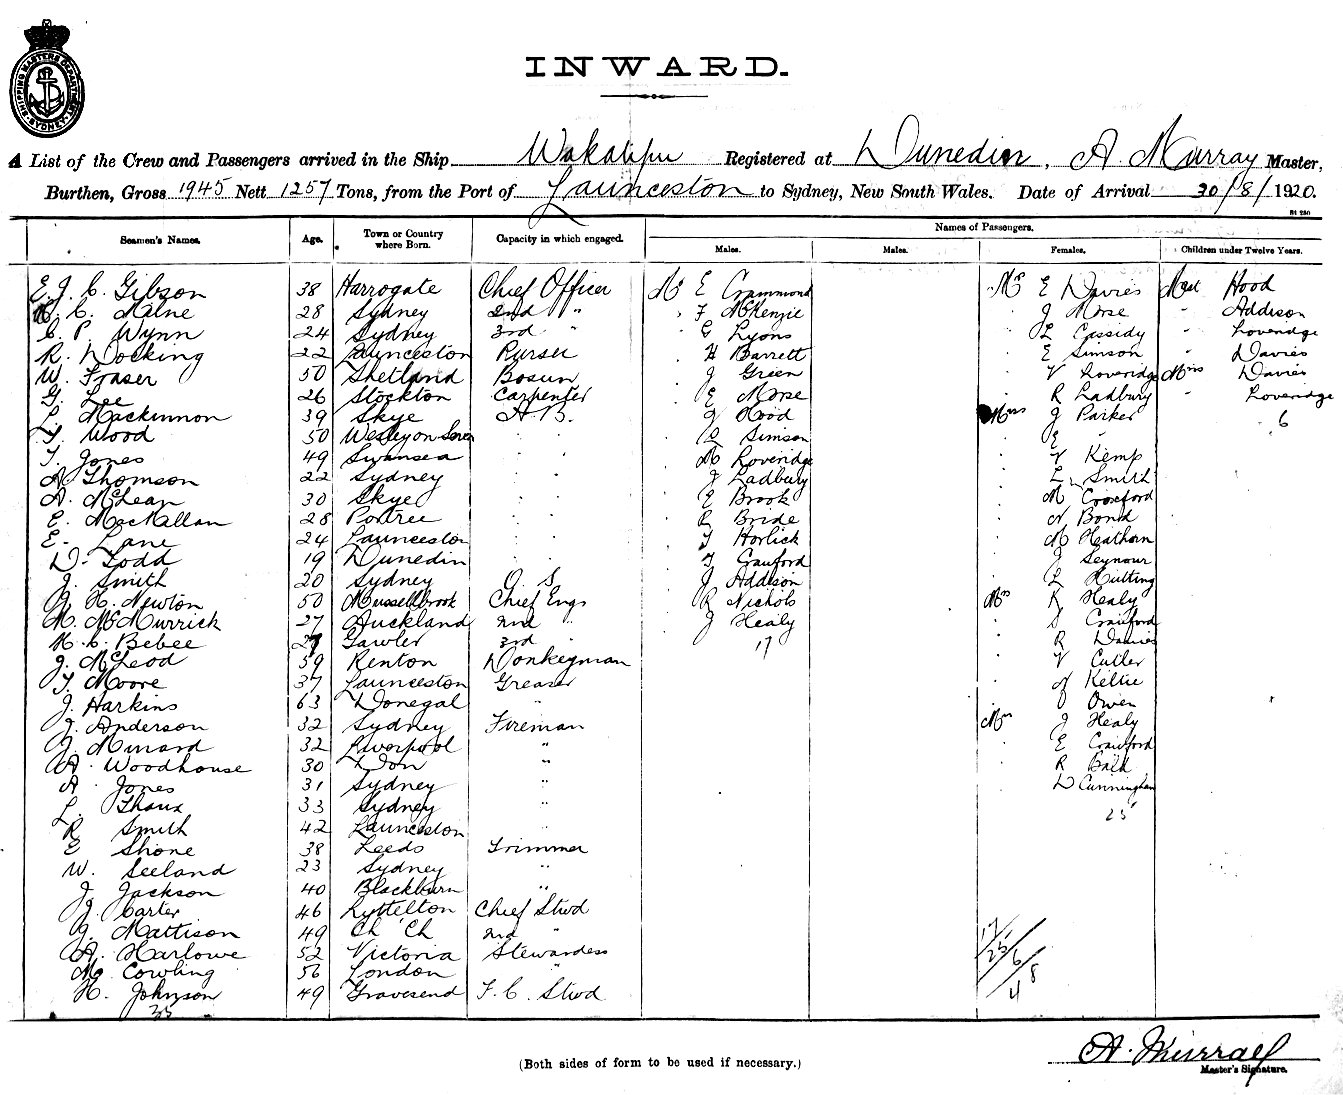 SHIPPING MASTERS DEPARTMENT SYDNEY
INWARD.
A List of the Crew and Passengers arrived in the Ship Wakatipu Registered at Dunedin, A. Murray Master,
Burthen, Gross 1945 Nett 1257 Tons, from the Port of Launceston to Sydney, New South Wales. Date of Arrival 30/8/1920.
Names of Passengers.
Seamen's Names. Age. Town or Country where Born. Capacity in which engaged. Males. Males. Females. Children under Twelve Years.
E. J. C. Gibson 38 Harrogate Chief Officer Mr E Crammond Mrs E Davies Mast Hood
C. Milne 28 Sydney 2nd " F McKenzie J Morse Addison
C. P. Wynn 24 Sydney 3rd " G Lyons L Cassidy " Loveridge
R. Docking 22 Launceston Purser H Barrett E Simson " Davies
W. Fraser 50 Shetland Bosun J Green V Loveridge Miss Davies
G. Lee 26 Stockton Carpenter E Morse R Ladbury " Loveridge
L. Mackinnon 39 Skye A.B. J Hood Miss J Parker 6
T. Wood 50 Simson E "
T. Jones 49 Swansea M Loveridge V Kemp
A Thomson 22 Sydney J Ladbury L Smith
A. McLean 30 Skye E Brook M Crawford
E. MacKallan 28 Portree R Bride N Bond
E. Lane 24 Launceston T Horlick M Heathorn
D. Todd 19 Dunedin T Crawford J Seynour
J. Smith 20 Sydney O. S. J Addison L Hutting
J. H. Newton 50 Mussellbrook Chief Eng R Nichols Mrs K Healy
M. McMurrick 27 Auckland 2nd " J Healy S Crawford
H. C. Bebee Gawler 3rd " 17 R Davies
J. McLeod 59 Renton Donkeyman V Cutler
T. Moore 37 Launceston Greaser N Keltie
J. Harkins 63 Donegal " J Owen
J. Anderson 32 Sydney Fireman Mrs J Healy
J. Minard 32 Liverpool " E Crawford
A. Woodhouse 30 Don " R Bald
A. Jones 31 Sydney " D Cunningham
L. Thaux 33 Sydney " 25
R Smith 42 Launceston "
E Shone 38 Leeds Trimmer
W. Seeland 23 Sydney "
J. Jackson 40 Blackburn "
J. Carter 46 Lyttelton Chief Stwd
J. Mattison 49 Ch Ch 2nd " 17/
A. Harlowe 52 Victoria Stewardess 25/
M. Cowling 56 London " 6/
H. Johnson 49 Gravesend F. C. Stwd 48
35
A. Murray
(Both sides of form to be used if necessary.)
Master's Signature.